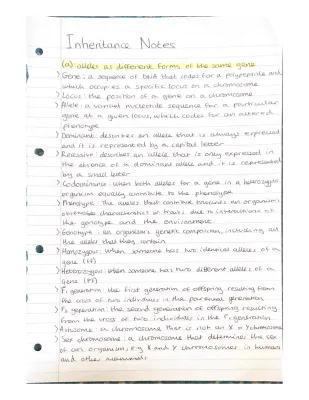 Inheritance Notes
(a) alleles as different forms of the same gene
> Gene: a sequence of DNA that codes for a polypeptide and
which occupies a specific locus on a chromosome
> Locus: the position of a gene on a chromosome
> Allele: a variant nucleotide sequence for a particular
gene at a given locus, which codes for an altered
phenotype
> Dominant: describes an allele that is always expressed
and it is represented by a capital letter
> Recessive: describes an allele that is only expressed in
the absence of a dominant allele and it is represented
by a small letter
> Codominance: when both alleles for a gene in a heterozygous
organism equally contribute to the phenotype
> Phenotype: The alleles that contribute towards an organism's
observable characteristics or traits due to interactions of
the genotype and the environment
> Genotype: An organism's genetic composition, including all
the alleles that they contain
> Homozygous: when someone has two identical alleles of a
gene (FF)
> Heterozygous: when someone has two different alleles of a
gene (Ff)
> F₁ generation: the first generation of offspring resulting
from the cross of two individuals in the parental generation
> F₂ generation: the second generation of offspring resulting
from the cross of two individuals in the F₁ generation
> Autosome: a chromosome that is not an X or Y chromosome
> Sex chromosome: a chromosome that determines the sex
of an organism, e.g X and Y chromosomes in humans
and other mammals